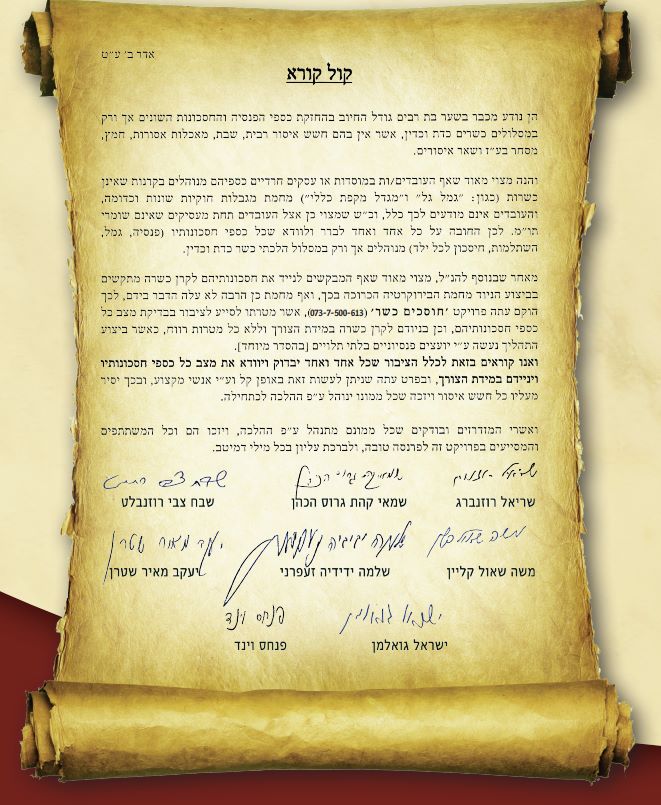 אדר ב׳ ע״ט
קול קורא
הן נודע מכבר בשער בת רבים גודל החיוב בהחזקת כספי הפנסיה והחסכונות השונים אך ורק
במסלולים כשרים כדת וכדין, אשר אין בהם חשש איסור רבית, שבת, מאכלות אסורות, חמץ,
מסחר בע״ז ושאר איסורים.
והנה מצוי מאוד שאף העובדים/ות במוסדות או עסקים חרדיים כספיהם מנוהלים בקרנות שאינן
כשרות (כגון: ״גמל גל״ ו״מגדל מקפת כללי״) מחמת מגבלות חוקיות שונות וכדומה,
והעובדים אינם מודעים לכך כלל, וכ״ש שמצוי כן אצל העובדים תחת מעסיקים שאינם שומרי
תו״מ. לכן החובה על כל אחד ואחד לברר ולוודא שכל כספי חסכונותיו (פנסיה, גמל,
השתלמות, חיסכון לכל ילד) מנוהלים אך ורק במסלול הלכתי כשר כדת וכדין.
מאחר שבנוסף להנ״ל, מצוי מאוד שאף המבקשים לנייד את חסכונותיהם לקרן כשרה מתקשים
בביצוע הניוד מחמת הבירוקרטיה הכרוכה בכך, ואף מחמת כן הרבה לא עלה הדבר בידם, לכך
הוקם עתה פרויקט ׳חוסכים כשר׳ (073-7-500-613), אשר מטרתו לסייע לציבור בבדיקת מצב כל
כספי חסכונותיהם, וכן בניודם לקרן כשרה במידת הצורך וללא כל מטרות רווח, כאשר ביצוע
התהליך נעשה ע״י יועצים פנסיוניים בלתי תלויים [בהסדר מיוחד].
ואנו קוראים בזאת לכלל הציבור שכל אחד ואחד יבדוק ויוודא את מצב כל כספי חסכונותיו
ויניידם במידת הצורך, ובפרט עתה שניתן לעשות זאת באופן קל וע״י אנשי מקצוע, ובכך יסיר
מעליו כל חשש איסור ויזכה שכל ממונו ינוהל ע״פ ההלכה לכתחילה.
ואשרי המזדרזים ובודקים שכל ממונם מתנהל ע״פ ההלכה, ויזכו הם וכל המשתתפים
והמסייעים בפרויקט זה לפרנסה טובה, ולברכת עליון בכל מילי דמיטב.
שריאל רוזנברג שמאי קהת גרוס הכהן שבח צבי רוזנבלט
משה שאול קליין שלמה ידידיה זעפרני יעקב מאיר שטרן
ישראל גואלמן פנחס וינד